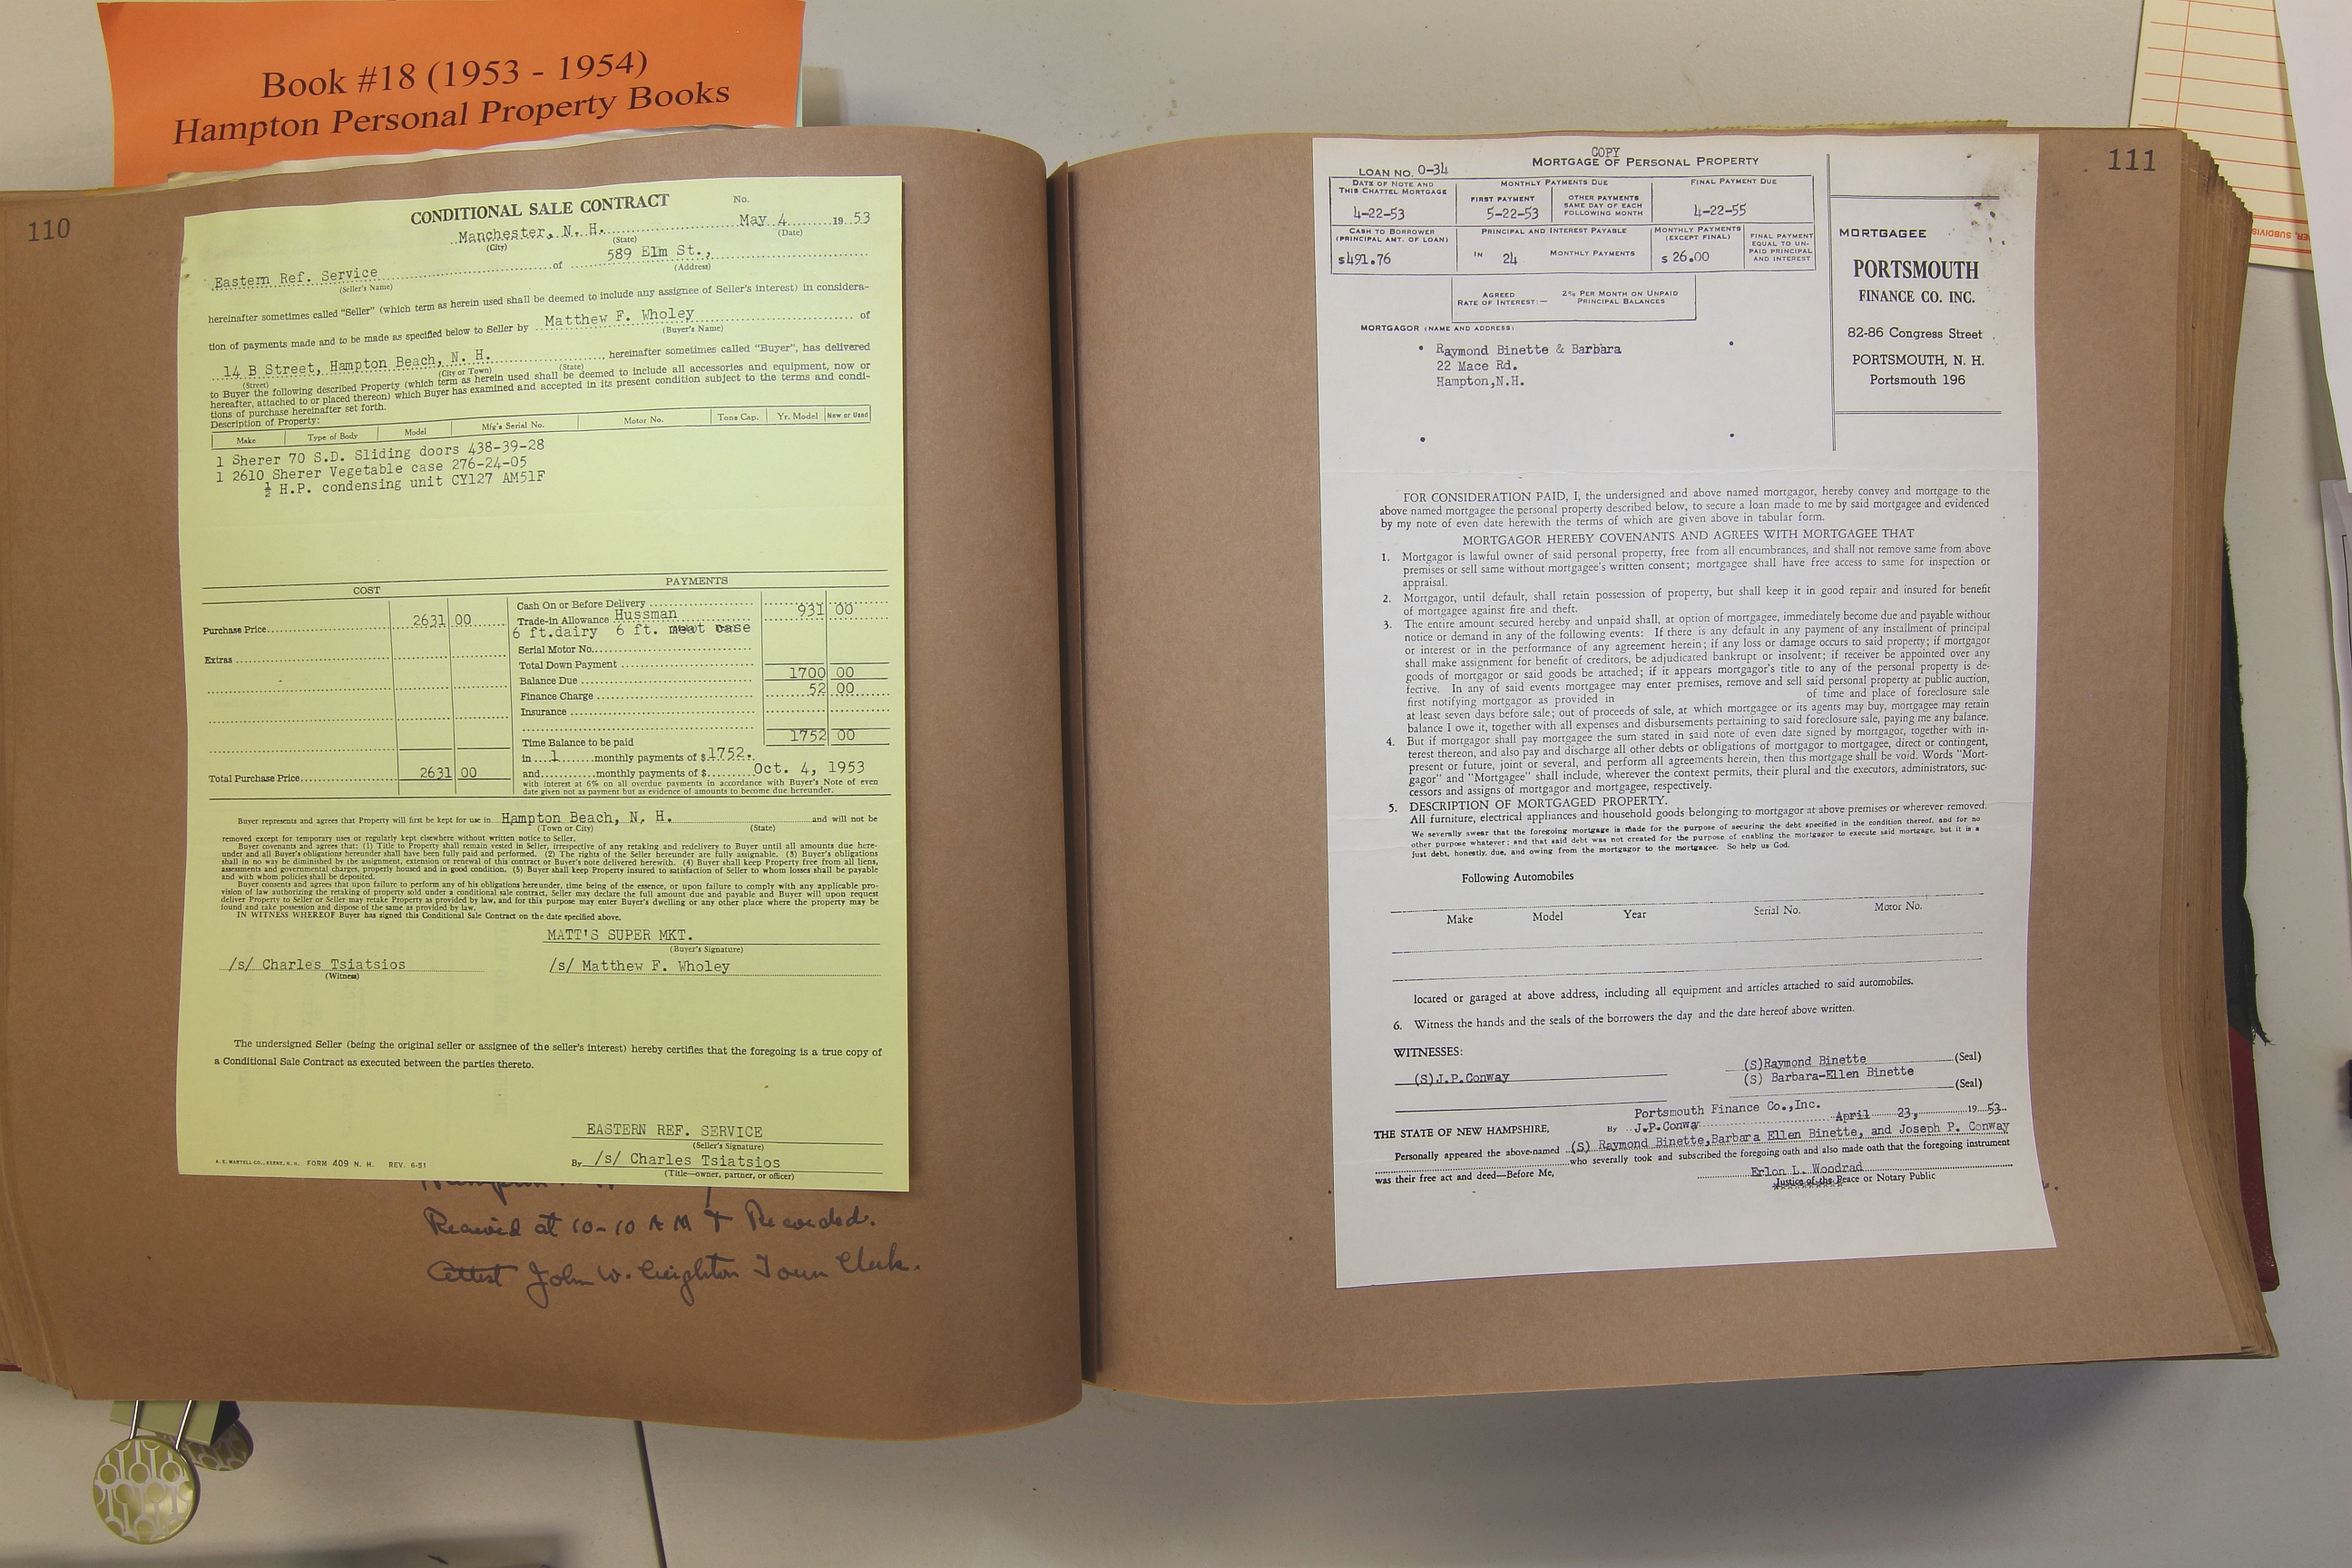 Book #18 (1953 - 1954)
Hampton Personal Property Books
110
CONDITIONAL SALE CONTRACT
No.
Manchester, N. H. May 4 1953
(City) (State) (Date)
Eastern Ref. Service of 589 Elm St.,
(Seller's Name) (Address)
hereinafter sometimes called "Seller" (which term as herein used shall be deemed to include any assignee of Seller's interest) in considera-
tion of payments made and to be made as specified below to Seller by Matthew F. Wholey of
(Buyer's Name)
14 B Street, Hampton Beach, N. H. , hereinafter sometimes called "Buyer", has delivered
(Street) (City or Town) (State)
to Buyer the following described Property (which term as herein used shall be deemed to include all accessories and equipment, now or
hereafter, attached to or placed thereon) which Buyer has examined and accepted in its present condition subject to the terms and condi-
tions of purchase hereinafter set forth.
Description of Property:
Make Type of Body Model Mfg's Serial No. Motor No. Tons Cap. Yr. Model New or Used
1 Sherer 70 S.D. Sliding doors 438-39-28
1 2610 Sherer Vegetable case 276-24-05
½ H.P. condensing unit CY127 AM51F
COST PAYMENTS
Cash On or Before Delivery 931 00
Purchase Price 2631 00 Trade-in Allowance Hussman
6 ft.dairy 6 ft. meat case
Extras Serial Motor No.
Total Down Payment
Balance Due 1700 00
Finance Charge 52 00
Insurance
Time Balance to be paid 1752 00
in 1 monthly payments of $1752.
Total Purchase Price 2631 00 and monthly payments of $ Oct. 4, 1953
with interest at 6% on all overdue payments in accordance with Buyer's Note of even
date given not as payment but as evidence of amounts to become due hereunder.
Buyer represents and agrees that Property will first be kept for use in Hampton Beach, N. H. and will not be
(Town or City) (State)
removed except for temporary uses or regularly kept elsewhere without written notice to Seller.
Buyer covenants and agrees that: (1) Title to Property shall remain vested in Seller, irrespective of any retaking and redelivery to Buyer until all amounts due here-
under and all Buyer's obligations hereunder shall have been fully paid and performed. (2) The rights of the Seller hereunder are fully assignable. (3) Buyer's obligations
shall in no way be diminished by the assignment, extension or renewal of this contract or Buyer's note delivered herewith. (4) Buyer shall keep Property free from all liens,
assessments and governmental charges, properly housed and in good condition. (5) Buyer shall keep Property insured to satisfaction of Seller to whom losses shall be payable
and with whom policies shall be deposited.
Buyer consents and agrees that upon failure to perform any of his obligations hereunder, time being of the essence, or upon failure to comply with any applicable pro-
vision of law authorizing the retaking of property sold under a conditional sale contract, Seller may declare the full amount due and payable and Buyer will upon request
deliver Property to Seller or Seller may retake Property as provided by law, and for this purpose may enter Buyer's dwelling or any other place where the property may be
found and take possession and dispose of the same as provided by law.
IN WITNESS WHEREOF Buyer has signed this Conditional Sale Contract on the date specified above.
MATT'S SUPER MKT.
(Buyer's Signature)
/s/ Charles Tsiatsios /s/ Matthew F. Wholey
(Witness)
The undersigned Seller (being the original seller or assignee of the seller's interest) hereby certifies that the foregoing is a true copy of
a Conditional Sale Contract as executed between the parties thereto.
EASTERN REF. SERVICE
(Seller's Signature)
By /s/ Charles Tsiatsios
(Title—owner, partner, or officer)
FORM 409 N. H. REV. 6-51
Received at 10-10 AM & Recorded.
Attest John W. Creighton Town Clerk.
111
COPY
MORTGAGE OF PERSONAL PROPERTY
LOAN NO. 0-34
DATE OF NOTE AND THIS CHATTEL MORTGAGE 4-22-53
MONTHLY PAYMENTS DUE
FIRST PAYMENT 5-22-53
OTHER PAYMENTS SAME DAY OF EACH FOLLOWING MONTH
FINAL PAYMENT DUE 4-22-55
CASH TO BORROWER (PRINCIPAL AMT. OF LOAN) $491.76
PRINCIPAL AND INTEREST PAYABLE
IN 24 MONTHLY PAYMENTS
MONTHLY PAYMENTS (EXCEPT FINAL) $ 26.00
FINAL PAYMENT EQUAL TO UN-PAID PRINCIPAL AND INTEREST
AGREED RATE OF INTEREST:— 2% PER MONTH ON UNPAID PRINCIPAL BALANCES
MORTGAGEE
PORTSMOUTH
FINANCE CO. INC.
82-86 Congress Street
PORTSMOUTH, N. H.
Portsmouth 196
MORTGAGOR (NAME AND ADDRESS)
Raymond Binette & Barbara
22 Mace Rd.
Hampton,N.H.
FOR CONSIDERATION PAID, I, the undersigned and above named mortgagor, hereby convey and mortgage to the
above named mortgagee the personal property described below, to secure a loan made to me by said mortgagee and evidenced
by my note of even date herewith the terms of which are given above in tabular form.
MORTGAGOR HEREBY COVENANTS AND AGREES WITH MORTGAGEE THAT
1. Mortgagor is lawful owner of said personal property, free from all encumbrances, and shall not remove same from above
premises or sell same without mortgagee's written consent; mortgagee shall have free access to same for inspection or
appraisal.
2. Mortgagor, until default, shall retain possession of property, but shall keep it in good repair and insured for benefit
of mortgagee against fire and theft.
3. The entire amount secured hereby and unpaid shall, at option of mortgagee, immediately become due and payable without
notice or demand in any of the following events: If there is any default in any payment of any installment of principal
or interest or in the performance of any agreement herein; if any loss or damage occurs to said property; if mortgagor
shall make assignment for benefit of creditors, be adjudicated bankrupt or insolvent; if receiver be appointed over any
goods of mortgagor or said goods be attached; if it appears mortgagor's title to any of the personal property is de-
fective. In any of said events mortgagee may enter premises, remove and sell said personal property at public auction,
first notifying mortgagor as provided in of time and place of foreclosure sale
at least seven days before sale; out of proceeds of sale, at which mortgagee or its agents may buy, mortgagee may retain
balance I owe it, together with all expenses and disbursements pertaining to said foreclosure sale, paying me any balance.
4. But if mortgagor shall pay mortgagee the sum stated in said note of even date signed by mortgagor, together with in-
terest thereon, and also pay and discharge all other debts or obligations of mortgagor to mortgagee, direct or contingent,
present or future, joint or several, and perform all agreements herein, then this mortgage shall be void. Words "Mort-
gagor" and "Mortgagee" shall include, wherever the context permits, their plural and the executors, administrators, suc-
cessors and assigns of mortgagor and mortgagee, respectively.
5. DESCRIPTION OF MORTGAGED PROPERTY.
All furniture, electrical appliances and household goods belonging to mortgagor at above premises or wherever removed.
We severally swear that the foregoing mortgage is made for the purpose of securing the debt specified in the condition thereof, and for no
other purpose whatever; and that said debt was not created for the purpose of enabling the mortgagor to execute said mortgage, but it is a
just debt, honestly, due, and owing from the mortgagor to the mortgagee. So help us God.
Following Automobiles
Make Model Year Serial No. Motor No.
located or garaged at above address, including all equipment and articles attached to said automobiles.
6. Witness the hands and the seals of the borrowers the day and the date hereof above written.
WITNESSES:
(S)J.P.Conway (S)Raymond Binette (Seal)
(S) Barbara-Ellen Binette
(Seal)
Portsmouth Finance Co.,Inc.
THE STATE OF NEW HAMPSHIRE, By J.P.Conway April 23, 1953
Personally appeared the above-named (S) Raymond Binette,Barbara Ellen Binette, and Joseph P. Conway
who severally took and subscribed the foregoing oath and also made oath that the foregoing instrument
was their free act and deed—Before Me, Erlon L. Woodrad
Justice of the Peace or Notary Public